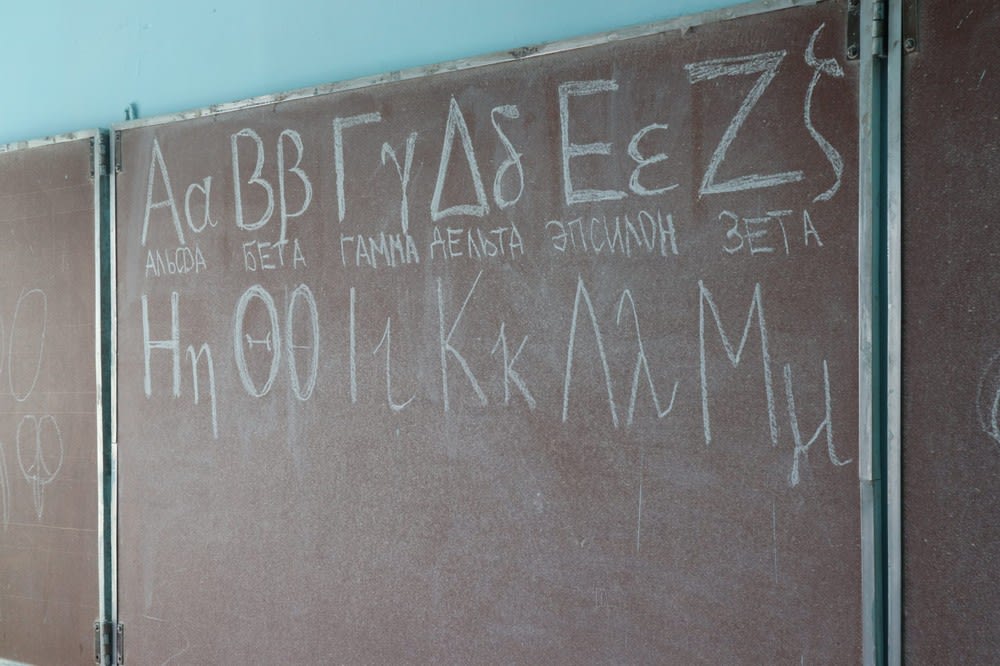 Αα Ββ Γγ Δδ Εε Ζζ
АЛЬФА БЕТА ГАММА ДЕЛЬТА ЭПСИЛОН ЗЕТА
Ηη Θθ Ιι Κκ Λλ Μμ